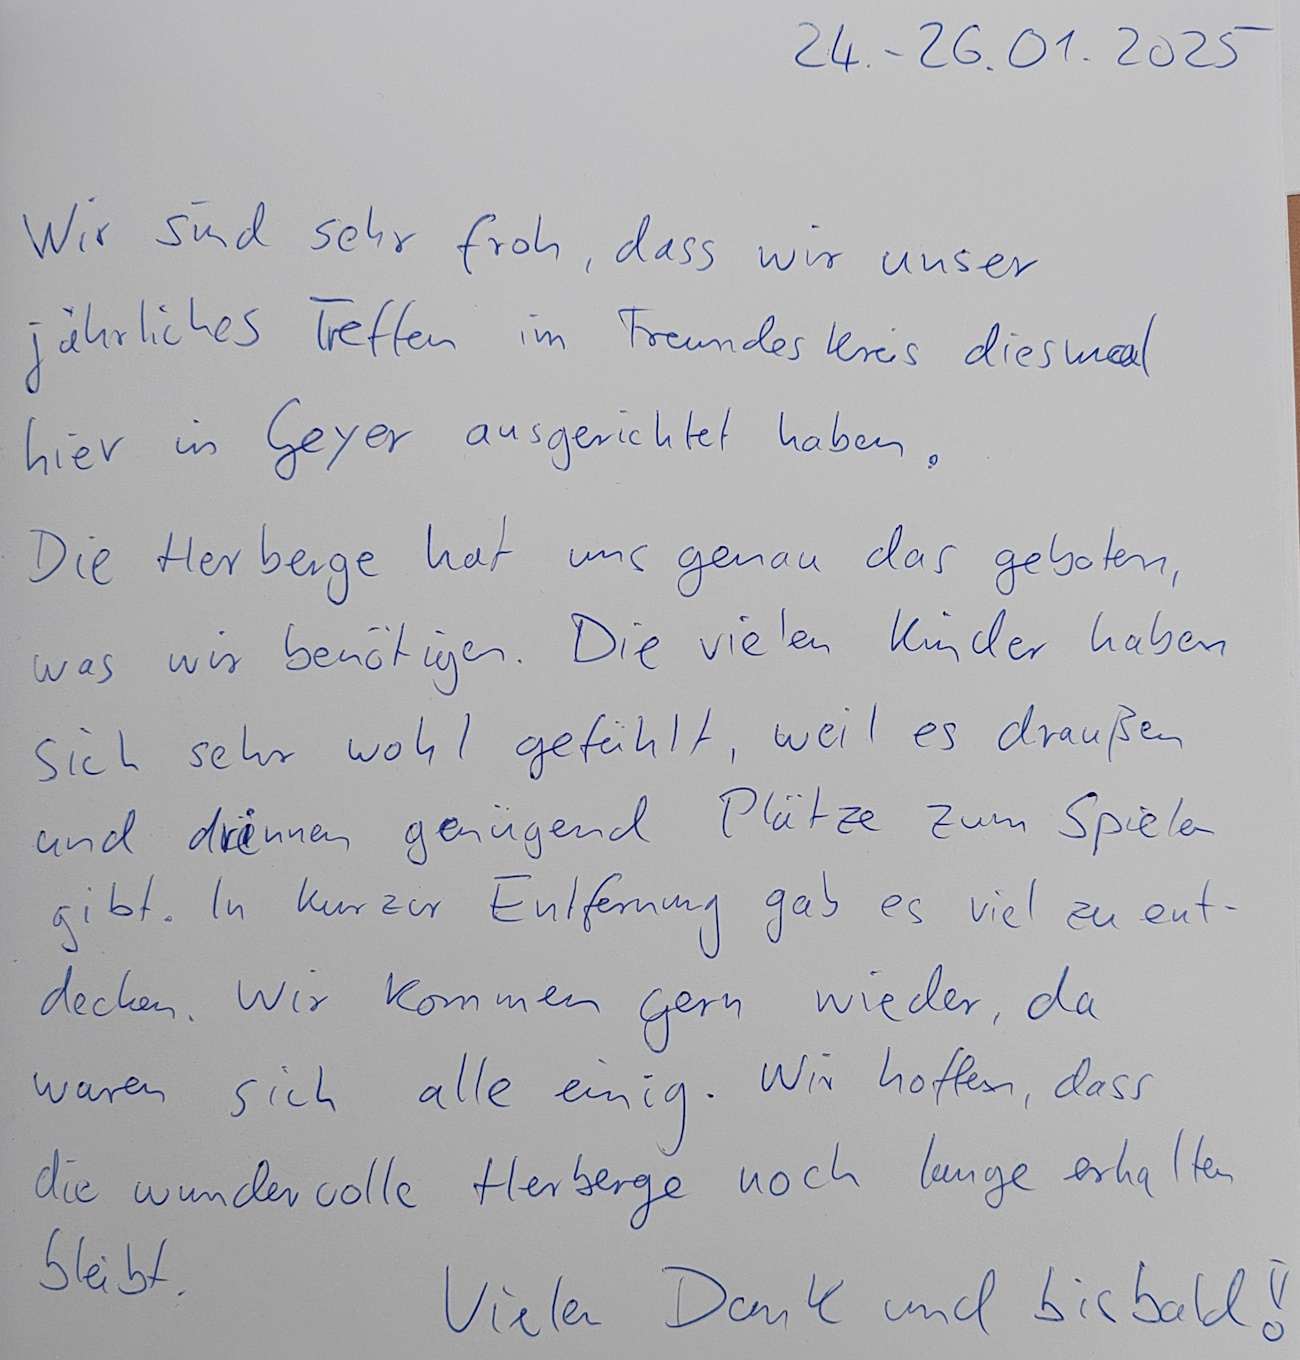 24.-26.01.2025
Wir sind sehr froh, dass wir unser
jährliches Treffen im Freundeskreis diesmal
hier in Geyer ausgerichtet haben.
Die Herberge hat uns genau das geboten,
was wir benötigen. Die vielen Kinder haben
sich sehr wohl gefühlt, weil es draußen
und drinnen genügend Plätze zum Spielen
gibt. In kurzer Entfernung gab es viel zu ent-
decken. Wir kommen gern wieder, da
waren sich alle einig. Wir hoffen, dass
die wundervolle Herberge noch lange erhalten
bleibt.
Vielen Dank und bis bald!